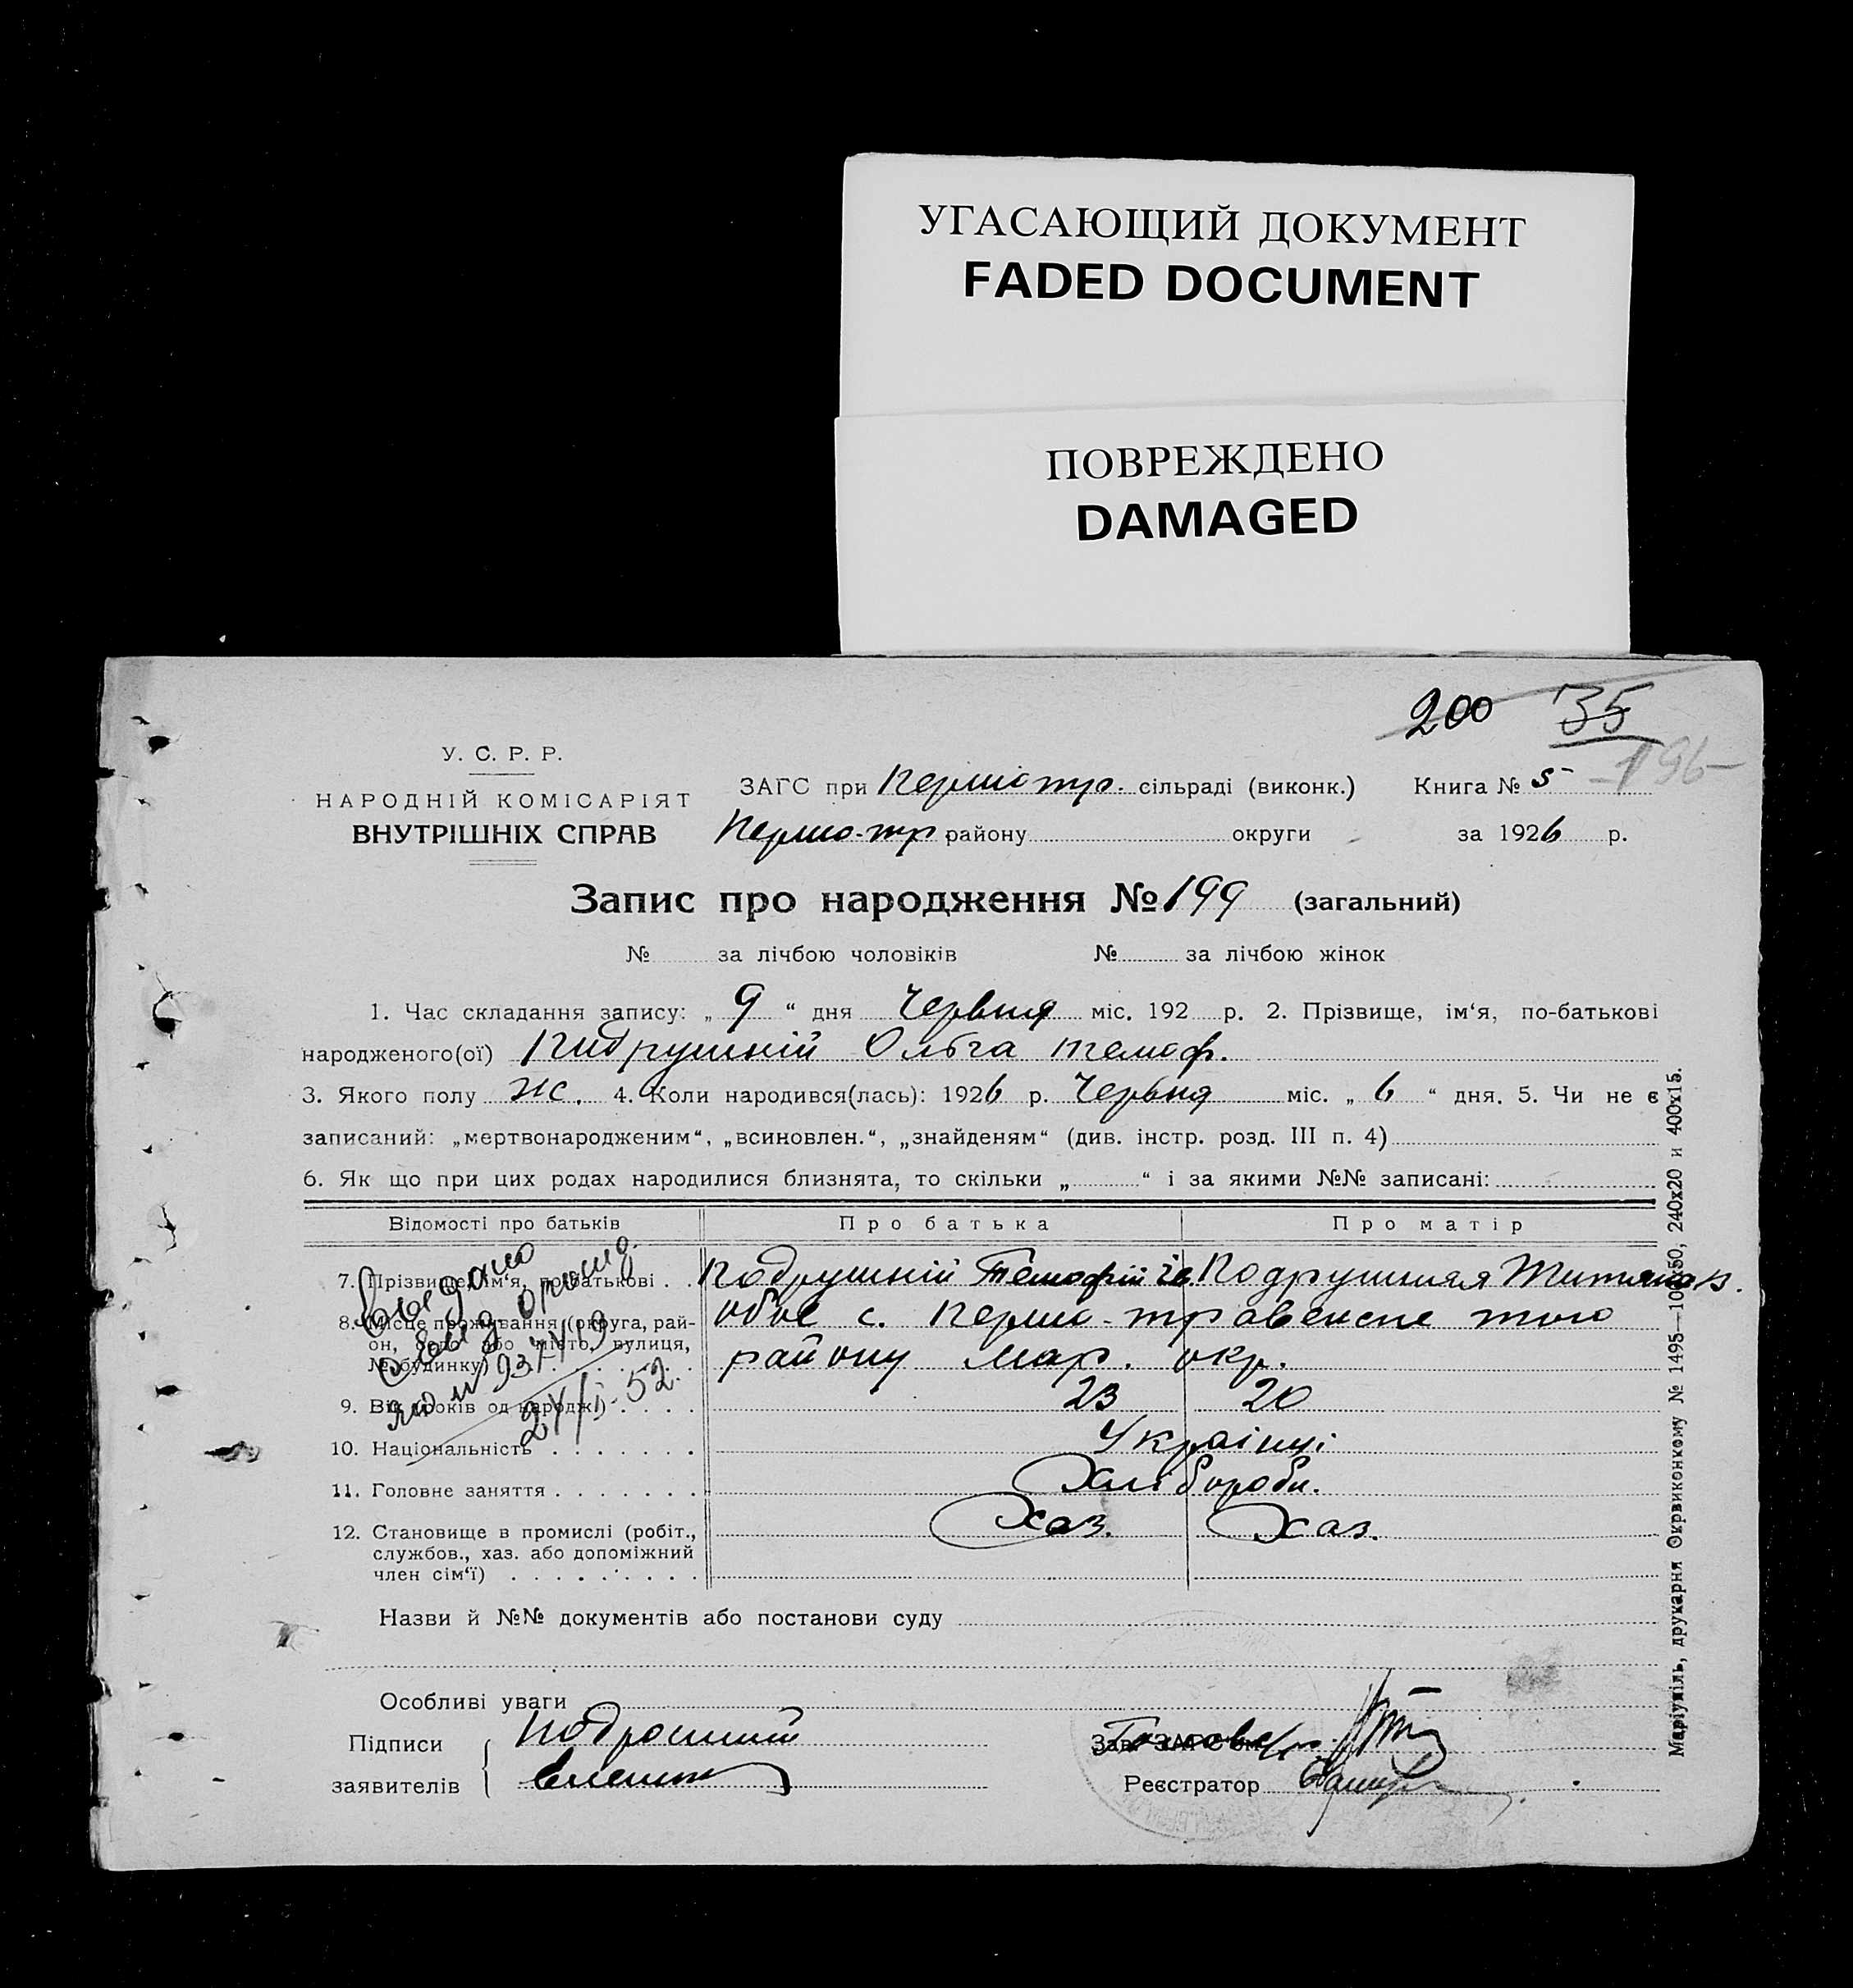 УГАСАЮЩИЙ ДОКУМЕНТ
FADED DOCUMENT
ПОВРЕЖДЕНО
DAMAGED
200 35
196
У. С. Р. Р.
НАРОДНІЙ КОМІСАРІЯТ
ВНУТРІШНІХ СПРАВ
ЗАГС при Першотр. сільраді (виконк.) Книга № 5
Першо-тр району округи за 1926 р.
Запис про народження № 199 (загальний)
№ за лічбою чоловіків № за лічбою жінок
1. Час складання запису: „ 9 “ дня Червня міс. 192 р. 2. Прізвище, ім‘я, по-батькові
народженого(ої) Подрушній Ольга темоф.
3. Якого полу жс. 4. Коли народився(лась): 1926 р. Червня міс. „ 6 “ дня. 5. Чи не є
записаний: „мертвонародженим“, „всиновлен.“, „знайденям“ (див. інстр. розд. III п. 4)
6. Як що при цих родах народилися близнята, то скільки „ “ і за якими №№ записані:
Відомості про батьків Про батька Про матір
7. Прізвище, ім‘я, по-батькові Подрушній Темофій Ів. Подрушняя
8. Місце проживання (округа, рай- обоє с. Першо-травенспе того
он, село або місто, вулиця,
№ будинку) району Мар. окр.
9. Вік (років од народж.) 23 20
10. Національність Українці
11. Головне заняття Хлібороби.
12. Становище в промислі (робіт., Хаз. Хаз.
службов., хаз. або допоміжний
член сім‘ї)
Выдано
52.
Назви й №№ документів або постанови суду
Особливі уваги
Підписи Подрошний
заявителів
Зав. ЗАГС'ом
Реєстратор
Маріупіль, друкарня Окрвиконкому № 1495—100х50, 240х20 и 400х15.